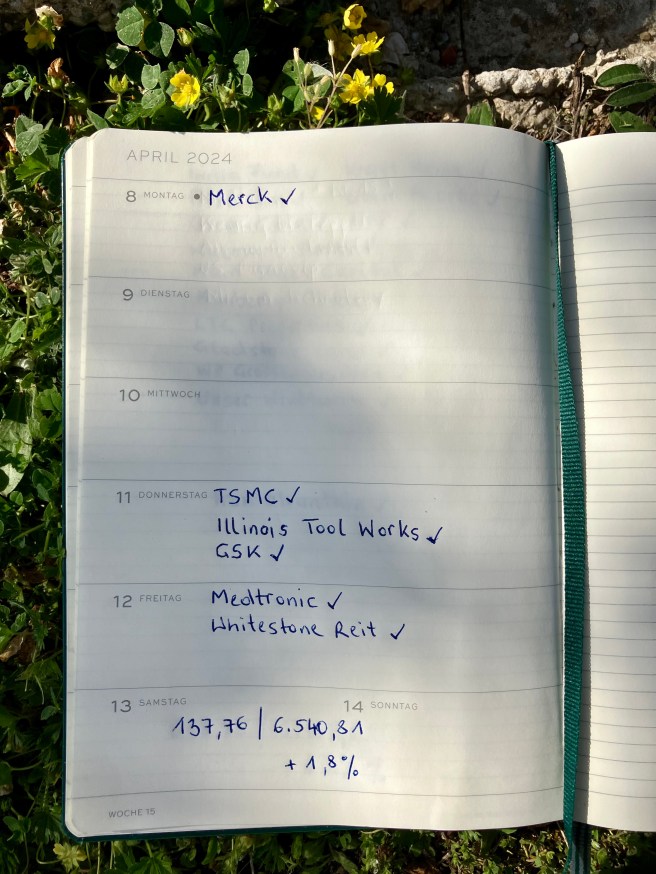 APRIL 2024
8 MONTAG • Merck ✓
9 DIENSTAG
10 MITTWOCH
11 DONNERSTAG TSMC ✓
Illinois Tool Works ✓
GSK ✓
12 FREITAG Medtronic ✓
Whitestone Reit ✓
13 SAMSTAG 14 SONNTAG
137,76 | 6.540,81
+ 1,8%
WOCHE 15